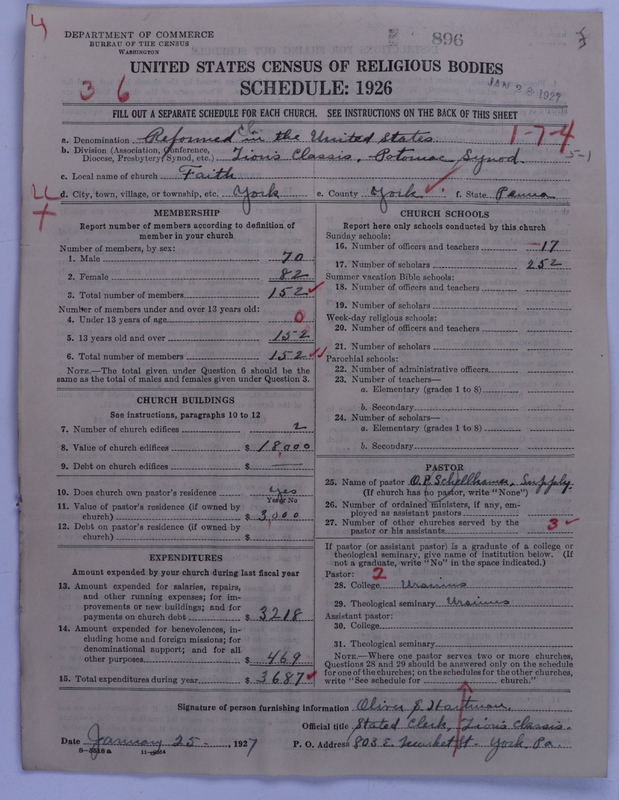 4
DEPARTMENT OF COMMERCE
BUREAU OF THE CENSUS
WASHINGTON
896
UNITED STATES CENSUS OF RELIGIOUS BODIES
SCHEDULE: 1926
JAN 28 1927
3 6
FILL OUT A SEPARATE SCHEDULE FOR EACH CHURCH. SEE INSTRUCTIONS ON THE BACK OF THIS SHEET
a. Denomination Reformed Ch in the United States 1-7-4
b. Division (Association, Conference, Diocese, Presbytery, Synod, etc.) Zion's Classis, Potomac Synod. 5-1
c. Local name of church Faith
d. City, town, village, or township, etc. York e. County York f. State Penna
MEMBERSHIP
Report number of members according to definition of
member in your church
Number of members, by sex:
1. Male 70
2. Female 82
3. Total number of members 152
Number of members under and over 13 years old:
4. Under 13 years of age 0
5. 13 years old and over 152
6. Total number of members 152
NOTE.—The total given under Question 6 should be the
same as the total of males and females given under Question 3.
CHURCH BUILDINGS
See instructions, paragraphs 10 to 12
7. Number of church edifices 2
8. Value of church edifices $ 18,000
9. Debt on church edifices $ —
10. Does church own pastor's residence yes
Yes or No
11. Value of pastor's residence (if owned by
church) $ 3,000
12. Debt on pastor's residence (if owned by
church) $
EXPENDITURES
Amount expended by your church during last fiscal year
13. Amount expended for salaries, repairs,
and other running expenses; for im-
provements or new buildings; and for
payments on church debt $ 3218
14. Amount expended for benevolences, in-
cluding home and foreign missions; for
denominational support; and for all
other purposes $ 469
15. Total expenditures during year $ 3687
CHURCH SCHOOLS
Report here only schools conducted by this church
Sunday schools:
16. Number of officers and teachers 17
17. Number of scholars 252
Summer vacation Bible schools:
18. Number of officers and teachers
19. Number of scholars
Week-day religious schools:
20. Number of officers and teachers
21. Number of scholars
Parochial schools:
22. Number of administrative officers
23. Number of teachers—
a. Elementary (grades 1 to 8)
b. Secondary
24. Number of scholars—
a. Elementary (grades 1 to 8)
b. Secondary
PASTOR
25. Name of pastor O. P. Schellhamer, Supply.
(If church has no pastor, write "None")
26. Number of ordained ministers, if any, em-
ployed as assistant pastors
27. Number of other churches served by the
pastor or his assistants 3
If pastor (or assistant pastor) is a graduate of a college or
theological seminary, give name of institution below. (If
not a graduate, write "No" in the space indicated.)
Pastor: 2
28. College Ursinus
29. Theological seminary Ursinus
Assistant pastor:
30. College
31. Theological seminary
NOTE.—Where one pastor serves two or more churches,
Questions 28 and 29 should be answered only on the schedule
for one of the churches; on the schedules for the other churches,
write "See schedule for church."
Signature of person furnishing information Oliver S. Hartman
Official title Stated Clerk, Zion's Classis.
Date January 25-, 1927 P. O. Address 803 E. Market St- York, Pa.